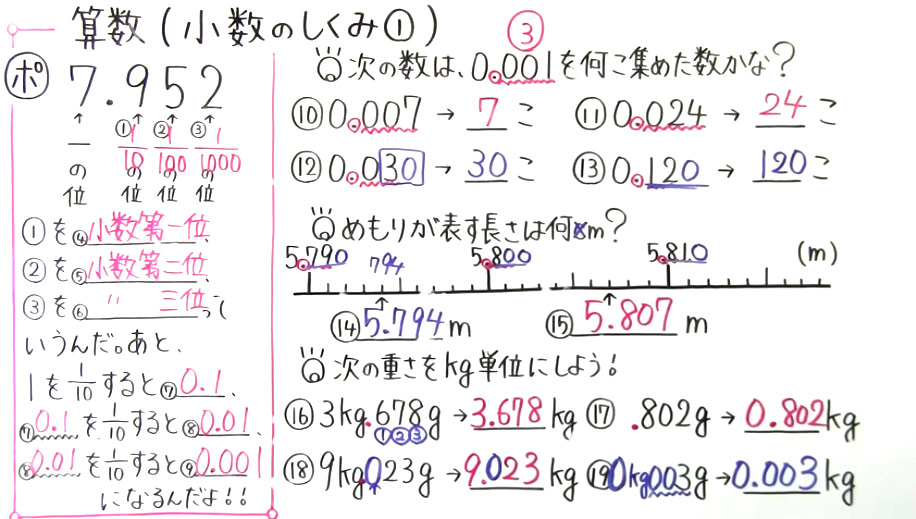 算数(小数のしくみ①)
③
ポ 7.952
↑ ①↑ ②↑ ③↑
一の位 1/10の位 1/100の位 1/1000の位
①を④小数第一位、
②を⑤小数第二位、
③を⑥ 〃 三位って
いうんだ。あと、
1を1/10すると⑦0.1、
⑦0.1を1/10すると⑧0.01、
⑧0.01を1/10すると⑨0.001
になるんだよ!!
次の数は、0.001を何こ集めた数かな?
⑩0.007→7こ ⑪0.024→24こ
⑫0.030→30こ ⑬0.120→120こ
めもりが表す長さは何m?
5.790 794 5.800 5.810 (m)
⑭5.794m ⑮5.807m
次の重さをkg単位にしよう!
⑯3kg.678g→3.678kg ⑰.802g→0.802kg
①②③
⑱9kg023g→9.023kg ⑲0kg003g→0.003kg